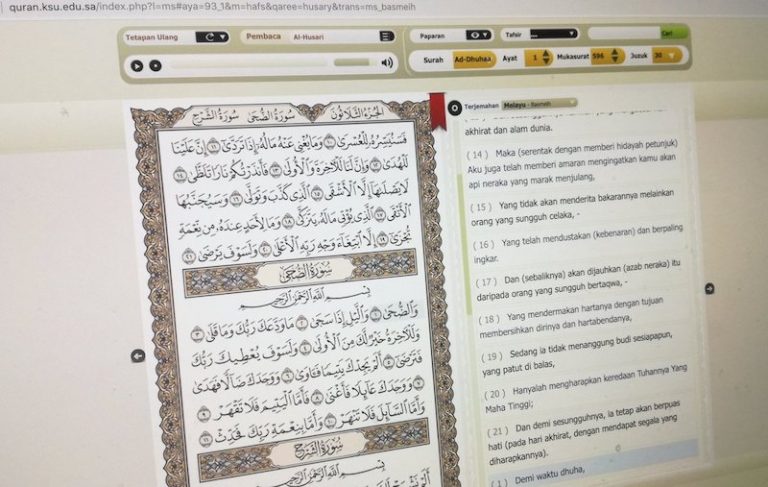 quran.ksu.edu.sa/index.php?l=ms#aya=93_1&m=hafs&qaree=husary&trans=ms_basmeih
Tetapan Ulang
Pembaca Al-Husari
Paparan
Tafsir
Cari
Surah Ad-Dhuhaa Ayat 1 Mukasurat 596 Juzuk 30
الجزء الثلاثون سورة الضحى سورة الشرح
فَسَنُيَسِّرُهُ لِلْعُسْرَىٰ ١٠ وَمَا يُغْنِي عَنْهُ مَالُهُ إِذَا تَرَدَّىٰ ١١ إِنَّ عَلَيْنَا
لَلْهُدَىٰ ١٢ وَإِنَّ لَنَا لَلْآخِرَةَ وَالْأُولَىٰ ١٣ فَأَنذَرْتُكُمْ نَارًا تَلَظَّىٰ ١٤
لَا يَصْلَاهَا إِلَّا الْأَشْقَى ١٥ الَّذِي كَذَّبَ وَتَوَلَّىٰ ١٦ وَسَيُجَنَّبُهَا
الْأَتْقَى ١٧ الَّذِي يُؤْتِي مَالَهُ يَتَزَكَّىٰ ١٨ وَمَا لِأَحَدٍ عِندَهُ مِن نِّعْمَةٍ
تُجْزَىٰ ١٩ إِلَّا ابْتِغَاءَ وَجْهِ رَبِّهِ الْأَعْلَىٰ ٢٠ وَلَسَوْفَ يَرْضَىٰ ٢١
سورة الضحى
بِسْمِ اللَّهِ الرَّحْمَٰنِ الرَّحِيمِ
وَالضُّحَىٰ ١ وَاللَّيْلِ إِذَا سَجَىٰ ٢ مَا وَدَّعَكَ رَبُّكَ وَمَا قَلَىٰ ٣
وَلَلْآخِرَةُ خَيْرٌ لَّكَ مِنَ الْأُولَىٰ ٤ وَلَسَوْفَ يُعْطِيكَ رَبُّكَ
فَتَرْضَىٰ ٥ أَلَمْ يَجِدْكَ يَتِيمًا فَآوَىٰ ٦ وَوَجَدَكَ ضَالًّا فَهَدَىٰ
٧ وَوَجَدَكَ عَائِلًا فَأَغْنَىٰ ٨ فَأَمَّا الْيَتِيمَ فَلَا تَقْهَرْ ٩
وَأَمَّا السَّائِلَ فَلَا تَنْهَرْ ١٠ وَأَمَّا بِنِعْمَةِ رَبِّكَ فَحَدِّثْ ١١
سورة الشرح
بِسْمِ اللَّهِ الرَّحْمَٰنِ الرَّحِيمِ
Terjemahan Melayu - Basmeih
akhirat dan alam dunia.
( 14 ) Maka (serentak dengan memberi hidayah petunjuk)
Aku juga telah memberi amaran mengingatkan kamu akan
api neraka yang marak menjulang,
( 15 ) Yang tidak akan menderita bakarannya melainkan
orang yang sungguh celaka, -
( 16 ) Yang telah mendustakan (kebenaran) dan berpaling
ingkar.
( 17 ) Dan (sebaliknya) akan dijauhkan (azab neraka) itu
daripada orang yang sungguh bertaqwa, -
( 18 ) Yang mendermakan hartanya dengan tujuan
membersihkan dirinya dan hartabendanya,
( 19 ) Sedang ia tidak menanggung budi sesiapapun,
yang patut di balas,
( 20 ) Hanyalah mengharapkan keredaan Tuhannya Yang
Maha Tinggi;
( 21 ) Dan demi sesungguhnya, ia tetap akan berpuas
hati (pada hari akhirat, dengan mendapat segala yang
diharapkannya).
( 1 ) Demi waktu dhuha,